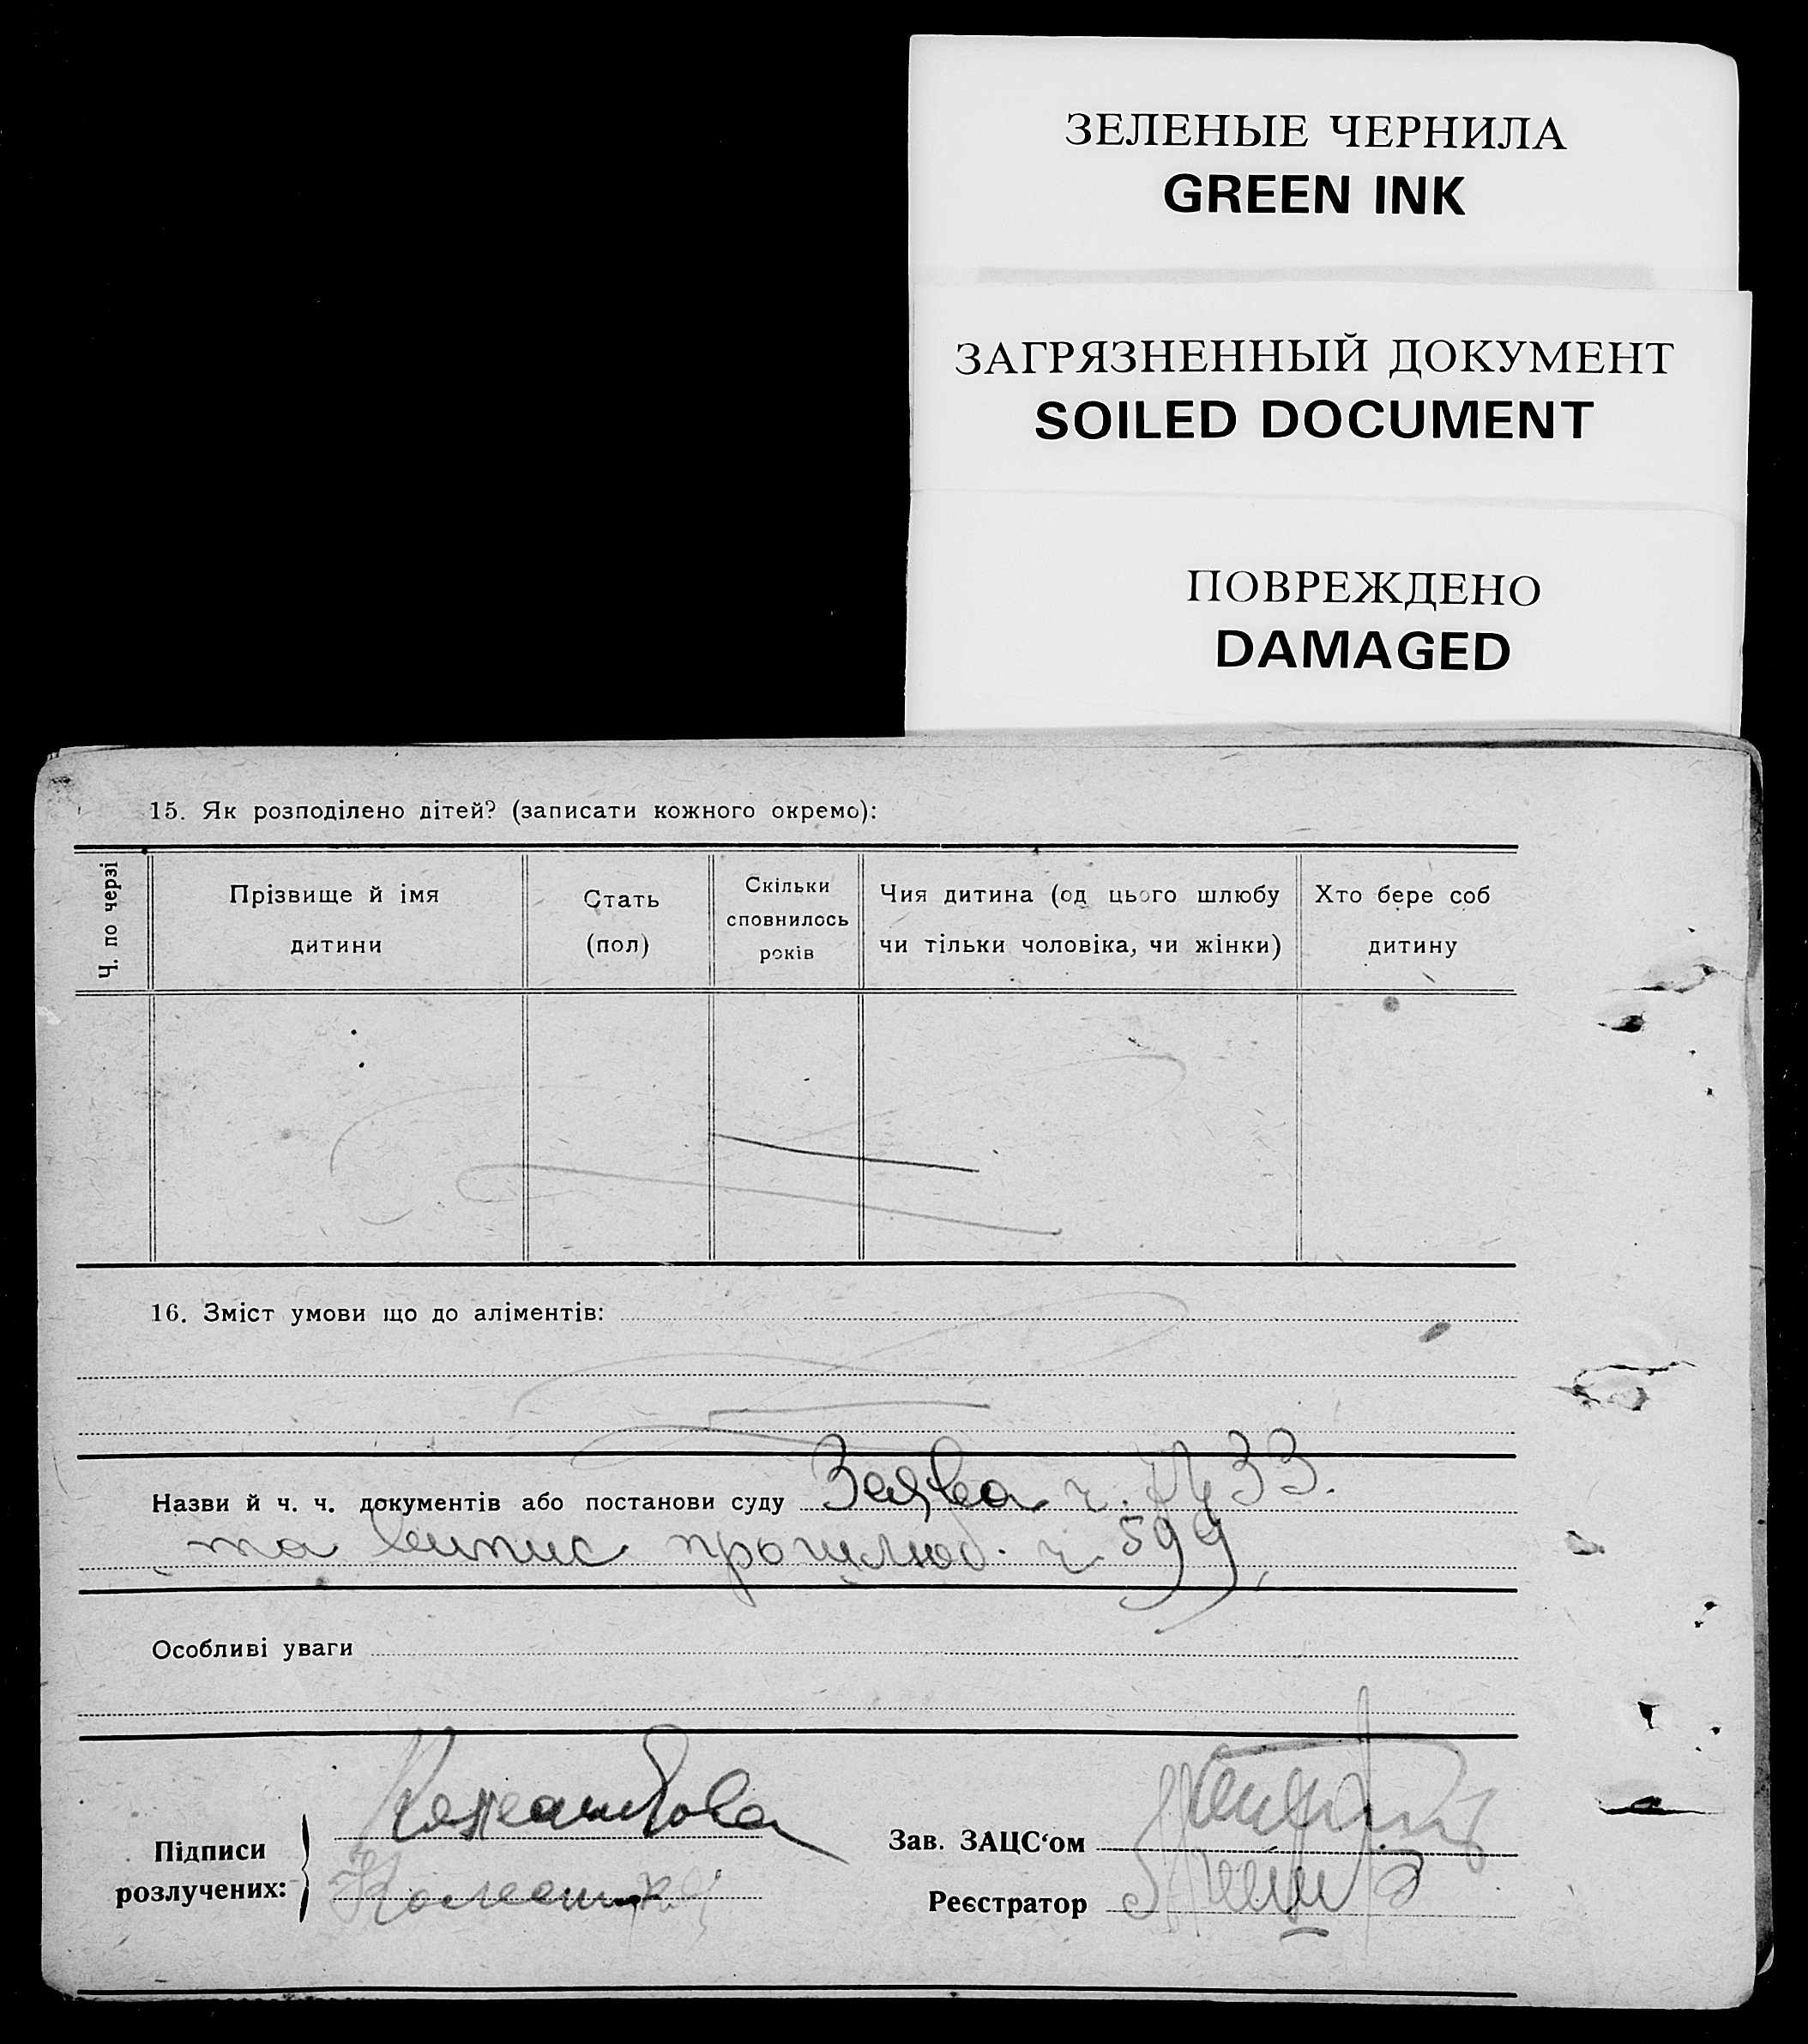 ЗЕЛЕНЫЕ ЧЕРНИЛА
GREEN INK
ЗАГРЯЗНЕННЫЙ ДОКУМЕНТ
SOILED DOCUMENT
ПОВРЕЖДЕНО
DAMAGED
15. Як розподілено дітей? (записати кожного окремо):
Ч. по черзі
Прізвище й імя
дитини
Стать
(пол)
Скільки
сповнилось
років
Чия дитина (од цього шлюбу
чи тільки чоловіка, чи жінки)
Хто бере соб
дитину
16. Зміст умови що до аліментів:
Назви й ч. ч. документів або постанови суду Заява ч.
та випис про шлюб. ч 599,
Особливі уваги
Підписи
розлучених:
Зав. ЗАЦС‘ом
Реєстратор